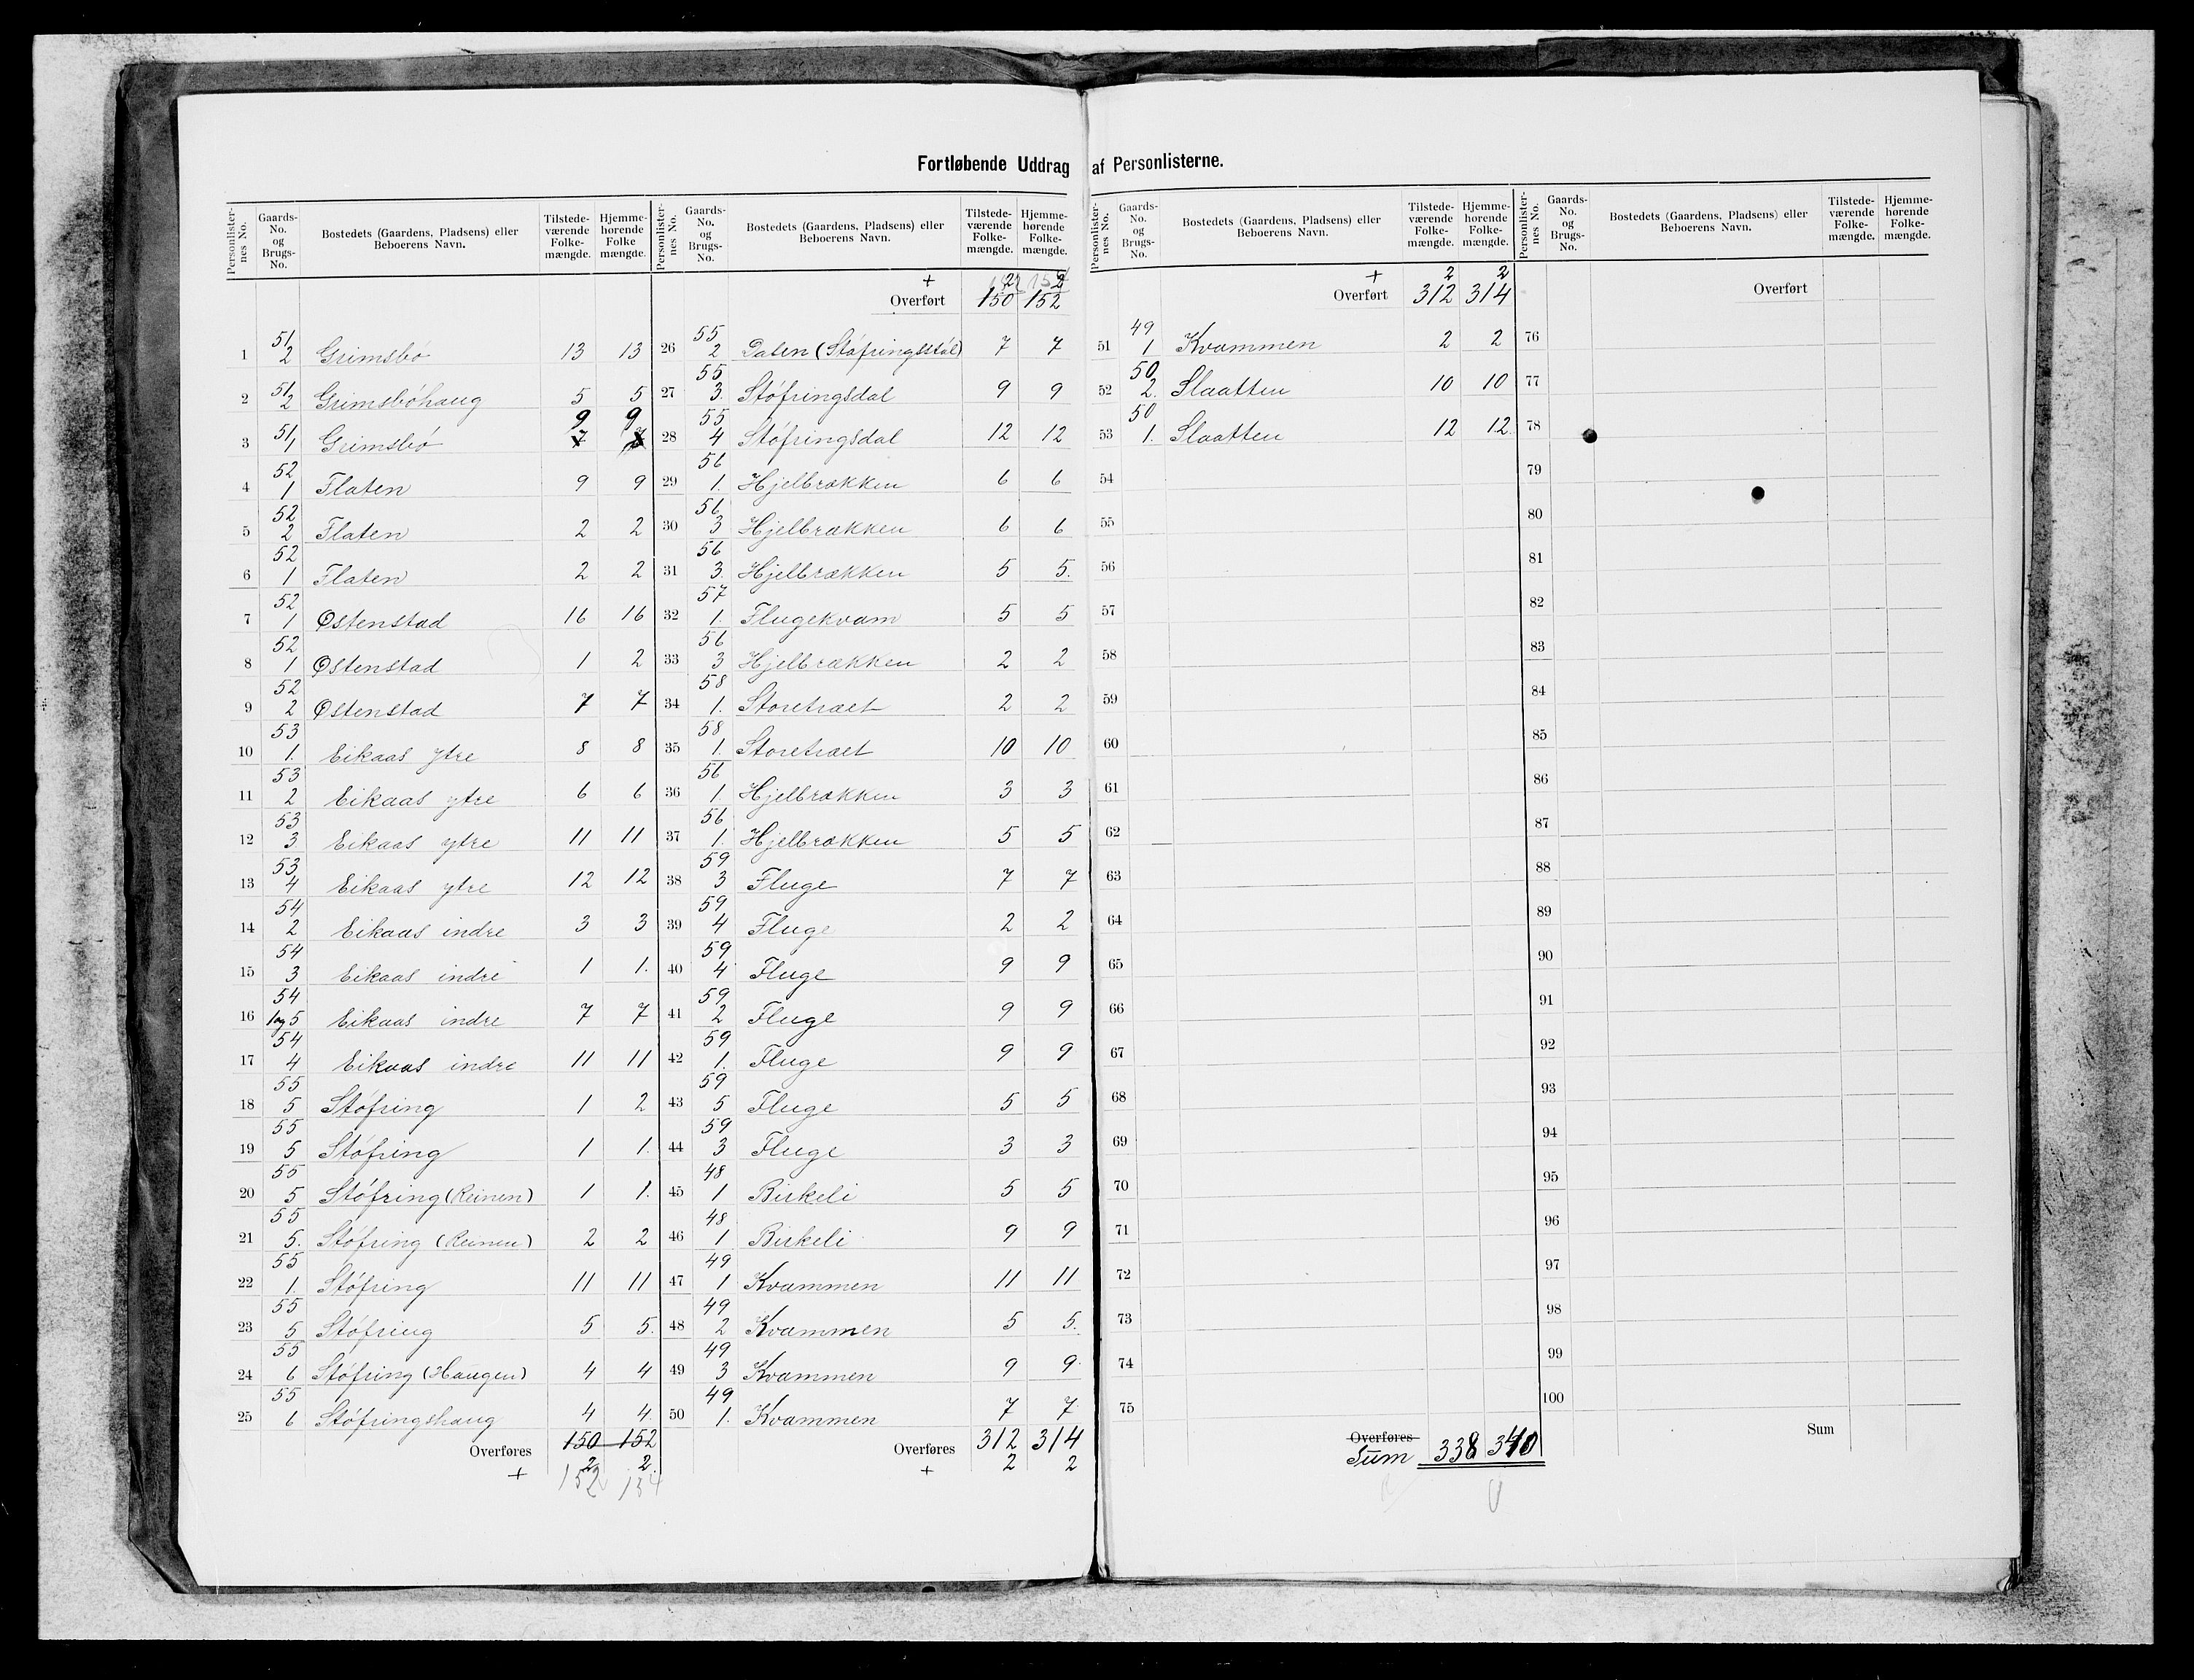 Fortløbende Uddrag af Personlisterne.
Personlisternes No. Gaards-No. og Brugs-No. Bostedets (Gaardens, Pladsens) eller Beboerens Navn. Tilstedeværende Folkemængde. Hjemmehørende Folkemængde.
1 51/2 Grimsbó 13 13
2 51/2 Grimsbóhaug 5 5
3 51/1 Grimsbó 7 9 9
4 52/1 Flaten 9 9
5 52/2 Flaten 2 2
6 52/1 Flaten 2 2
7 52/1 Østenstad 16 16
8 52/1 Østenstad 1 2
9 52/2 Østenstad 7 7
10 53/1. Eikaas ytre 8 8
11 53/2 Eikaas ytre 6 6
12 53/3 Eikaas ytre 11 11
13 53/4 Eikaas ytre 12 12
14 54/2 Eikaas indre 3 3
15 54/3 Eikaas indre 1 1.
16 54/1 og 5 Eikaas indre 7 7
17 54/4 Eikaas indre 11 11
18 55/5 Stófring 1 2
19 55/5 Stófring 1 1.
20 55/5 Stófring (Reinen) 1 1.
21 55/5. Stófring (Reinen) 2 2
22 55/1. Stófring 11 11
23 55/5 Stófring 5 5.
24 55/6 Stófring (Haugen) 4 4
25 55/6 Stófringshaug 4 4
Overføres 150 152
+ 2 2
152 154
Personlisternes No. Gaards-No. og Brugs-No. Bostedets (Gaardens, Pladsens) eller Beboerens Navn. Tilstedeværende Folkemængde. Hjemmehørende Folkemængde.
+ 2 2
Overført 150 152
26 55/2 (Stófringsstól) 7 7
27 55/3. Stófringsdal 9 9
28 55/4 Stófringsdal 12 12
29 56/1. Hjelbrækken 6 6
30 56/3 Hjelbrækken 6 6
31 56/3. Hjelbrækken 5 5.
32 57/1. Flugekvam 5 5
33 56/3 Hjelbrækken 2 2
34 58/1. Storetræet 2 2
35 58/1. Storetræet 10 10
36 56/1. Hjelbrækken 3 3
37 56/1. Hjelbrækken 5 5
38 59/3 Fluge 7 7
39 59/4 Fluge 2 2
40 59/4 Fluge 9 9
41 59/2 Fluge 9 9
42 59/1. Fluge 9 9
43 59/5 Fluge 5 5
44 59/3 Fluge 3 3
45 48/1 Birkeli 5 5
46 48/1 Birkeli 9 9
47 49/1 Kvammen 11 11
48 49/2 Kvammen 5 5.
49 49/3 Kvammen 9 9
50 49/1. Kvammen 7 7
Overføres 312 314
+ 2 2
Personlisternes No. Gaards-No. og Brugs-No. Bostedets (Gaardens, Pladsens) eller Beboerens Navn. Tilstedeværende Folkemængde. Hjemmehørende Folkemængde.
+ 2 2
Overført 312 314
51 49/1 Kvammen 2 2
52 50/2. Slaatten 10 10
53 50/1. Slaatten 12 12
54
55
56
57
58
59
60
61
62
63
64
65
66
67
68
69
70
71
72
73
74
75
Overføres
Sum 338 340
Personlisternes No. Gaards-No. og Brugs-No. Bostedets (Gaardens, Pladsens) eller Beboerens Navn. Tilstedeværende Folkemængde. Hjemmehørende Folkemængde.
Overført
76
77
78
79
80
81
82
83
84
85
86
87
88
89
90
91
92
93
94
95
96
97
98
99
100
Sum